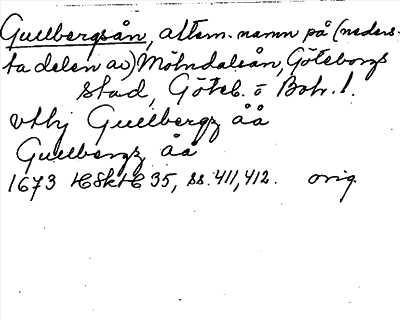 Gullbergsån, altern. namn på (neders-
ta delen av) Mölndalsån, Göteborgs
stad, Göteb. o Boh. l.
vthj Gullbergz åå
Gullbergz åå
1673 HSkH 35, ss. 411, 412. orig.